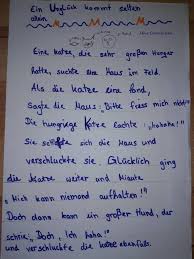 Ein Unglück kommt selten
allein
M M M
Eine Katze, die sehr großen Hunger
hatte, suchte eine Maus im Feld.
Als die Katze eine fand,
sagte die Maus: "Bitte friss mich nicht!"
Die hungrige Katze lachte: "hahaha!"
Sie schloss sich die Maus und
verschluckte sie. Glücklich ging
die Katze weiter und miaute
"Mich kann niemand aufhalten!"
Doch dann kam ein großer Hund, der
schrie: "Doch, Ich haha!"
und verschluckte die Katze ebenfalls.